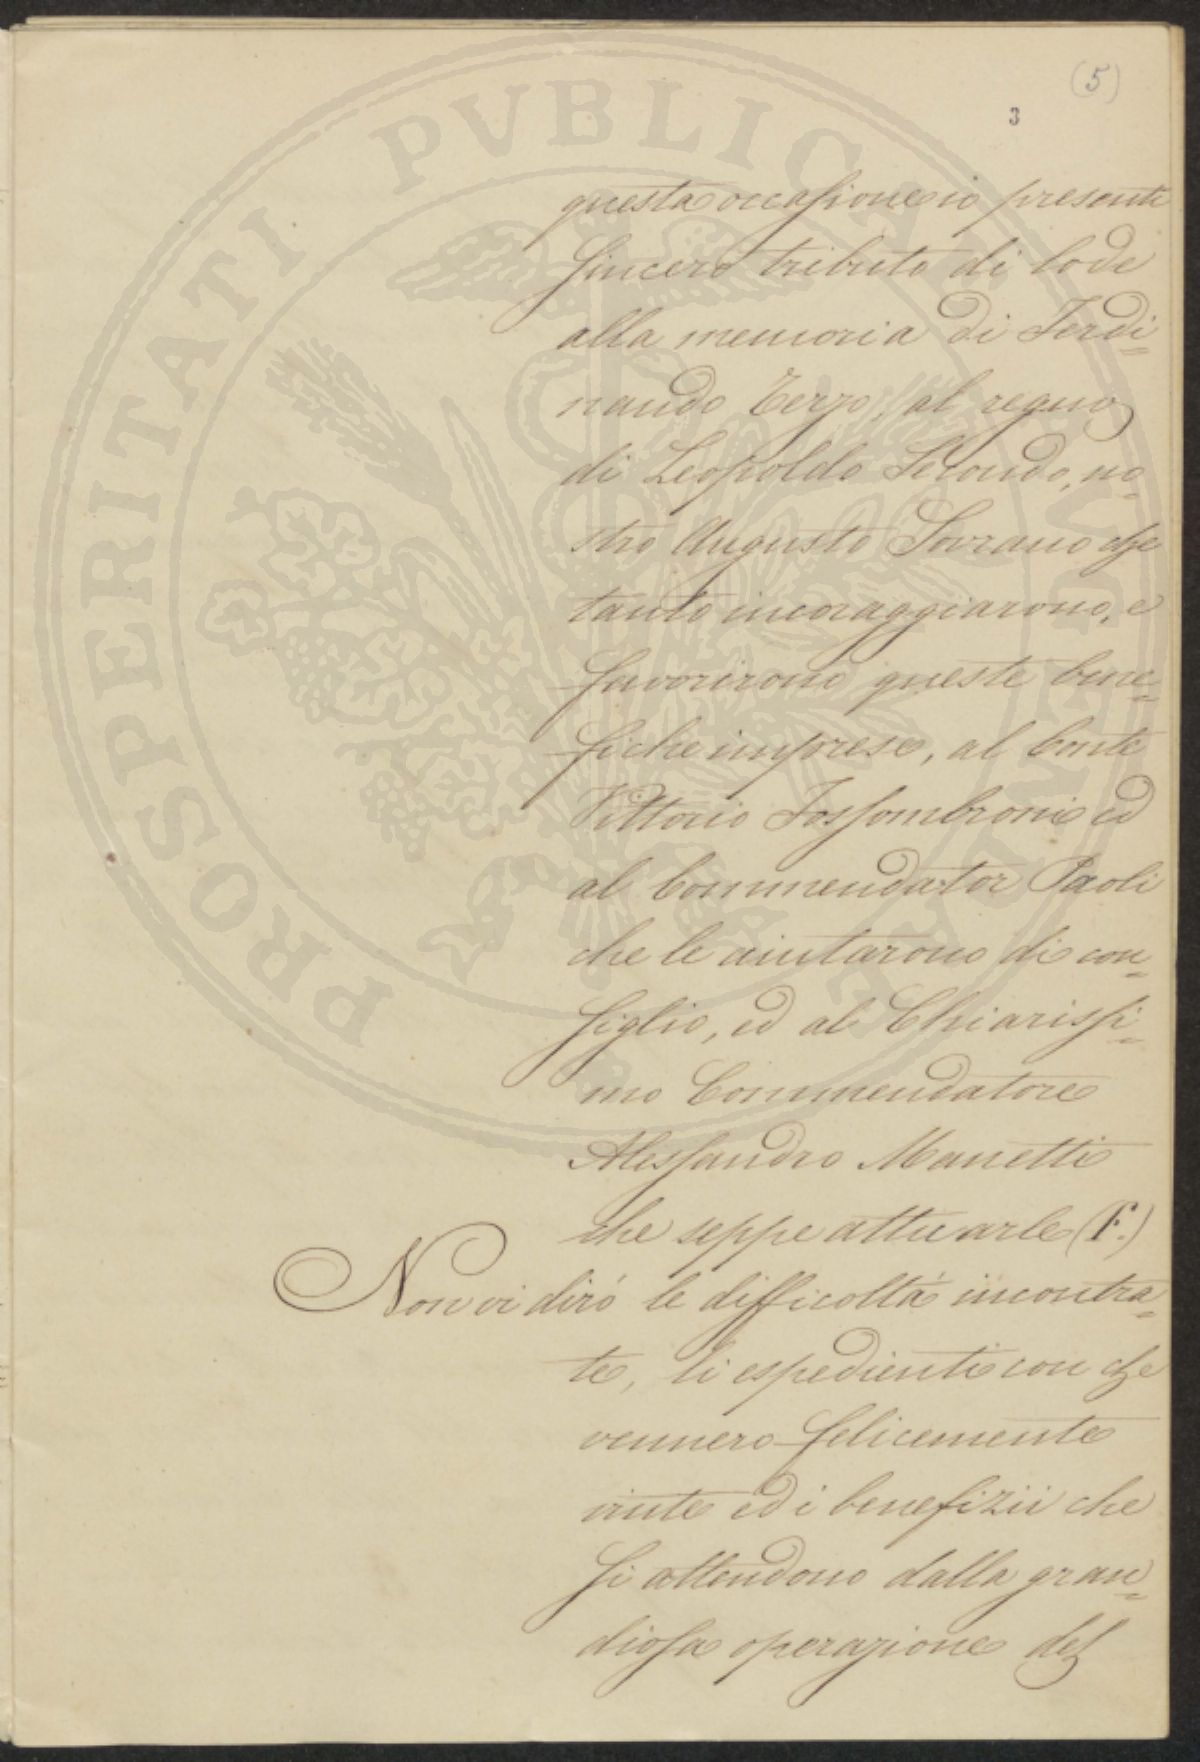 (5)
3
questa occasione io presenti
sincero tributo di lode
alla memoria di Ferdi=
nando Terzo, al regno
di Leopoldo Secondo, no=
stro Augusto Sovrano che
tanto incoraggiarono, e
favorirono queste bene=
fiche imprese, al Conte
Vittorio Fossombroni ed
al Commendator Paoli
che le aiutarono di con=
siglio, ed al Chiarissi=
mo Commendatore
Alessandro Manetti
che seppe attuarle (F.)
Non vi dirò le difficoltà incontra=
te, li espedienti con che
vennero felicemente
vinte ed i benefizii che
si attendono dalla gran=
diosa operazione del
PROSPERITATI PVBLICAE